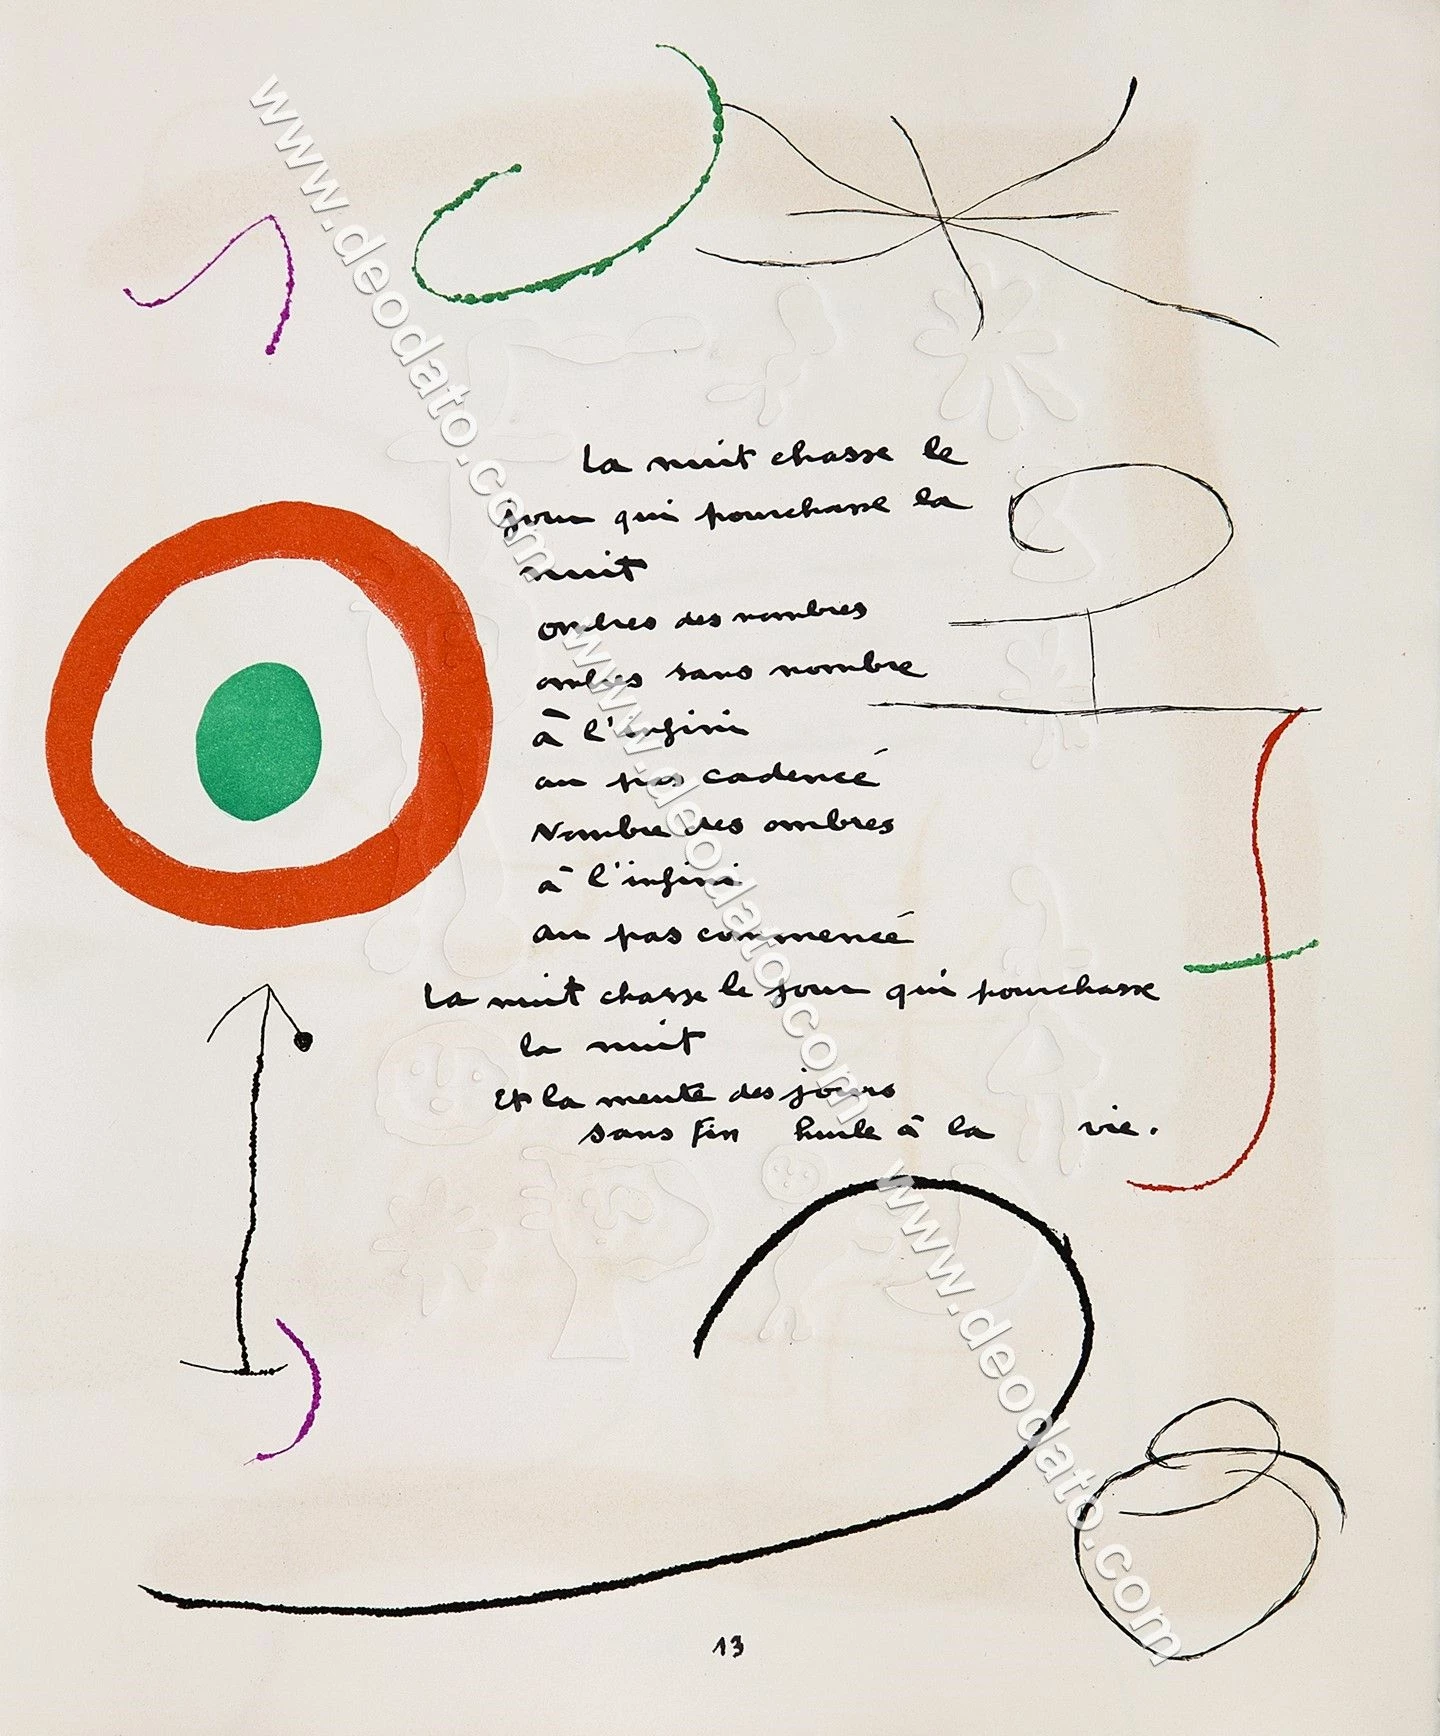 La nuit chasse le
jour qui pourchasse la
nuit
ombres des nombres
ombres sans nombre
à l'infini
au pas cadencé
Nombre des ombres
à l'infini
au pas commencé
La nuit chasse le jour qui pourchasse
la nuit
Et la meute des jours
sans fin hurle à la vie.
13
www.deodato.com
www.deodato.com
www.deodato.com